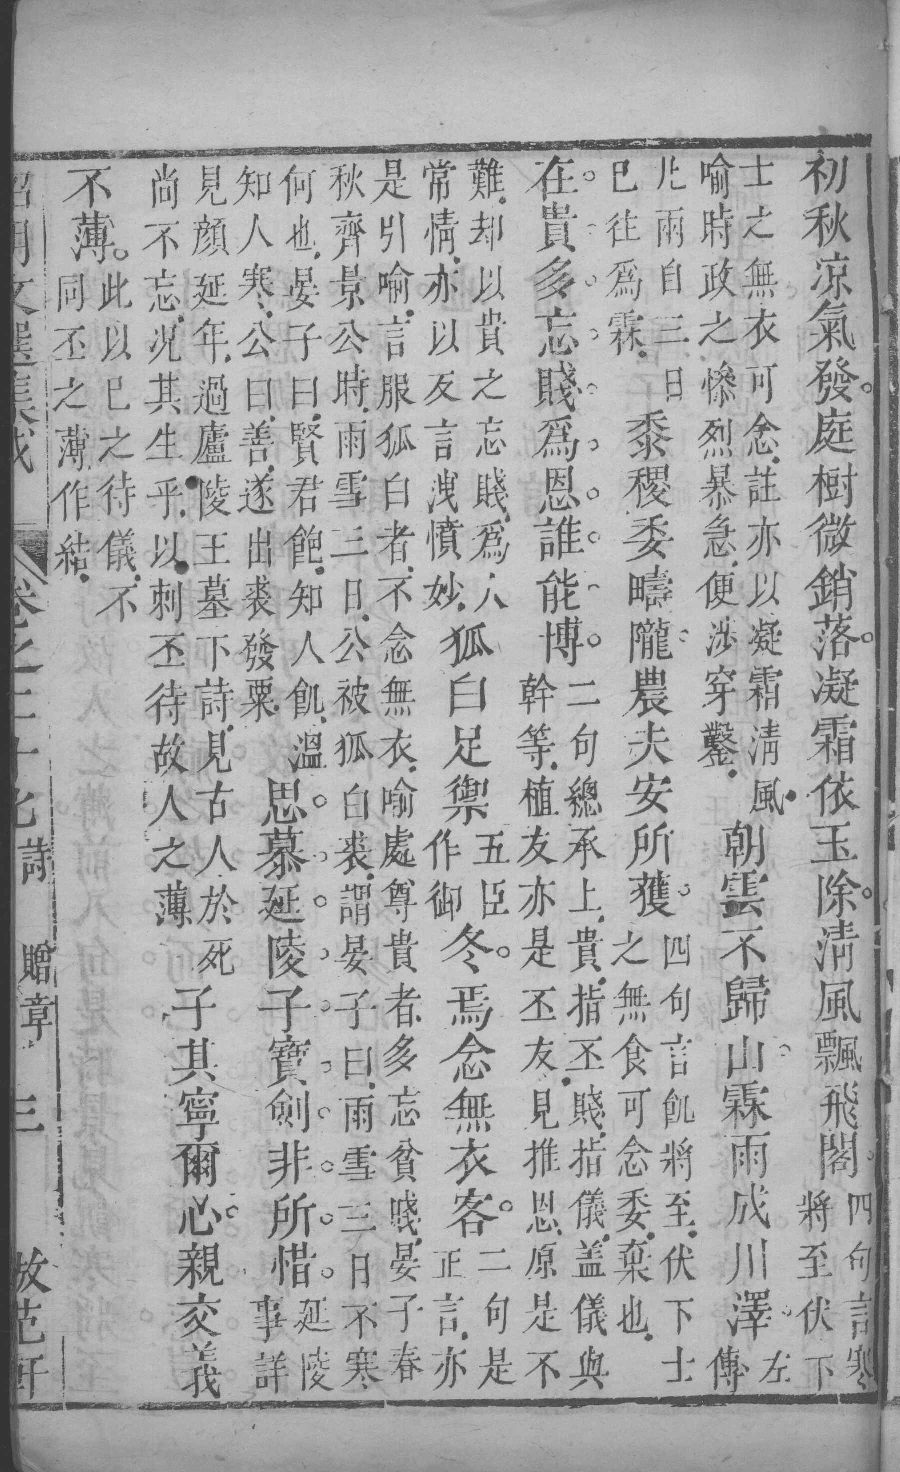 初秋凉氣發。庭樹微銷落。凝霜依玉除。淸風飄飛閣。四句言寒將至伏下
士之無衣可念。註亦以凝霜淸風喻時政之慘烈暴急。便涉穿鑿。朝雲不歸山。霖雨成川澤。左傳
凡雨自三日已往爲霖。黍稷委疇隴。農夫安所獲。四句言飢將至。伏下士之無食可念。委。棄也。
在貴多忘賤。爲恩誰能博。二句總承上。貴。指丕。賤。指儀。盖儀與幹等。植友亦是丕友。見推恩原是不
難。却以貴之忘賤。爲人常情。亦以反言洩憤妙。狐白足禦五臣作御冬。焉念無衣客。二句是正言。亦
是引喻。言服狐白者。不念無衣。喻處尊貴者。多忘貧賤。晏子春
秋齊景公時。雨雪三日。公被狐白裘。謂晏子曰。雨雪三日不寒
何也。晏子曰。賢君飽。知人飢。溫
知人寒。公曰。善。遂出裘發粟。思慕延陵子。寶劍非所惜。延陵事詳
見顏延年。過廬陵王墓下詩。見古人於死
尚不忘。况其生乎。以刺丕待故人之薄。子其寧爾心。親交義
不薄。此以已之待儀。不同丕之薄作結。
昭明文選集成 卷之二十七 詩 贈章 三 倣范軒